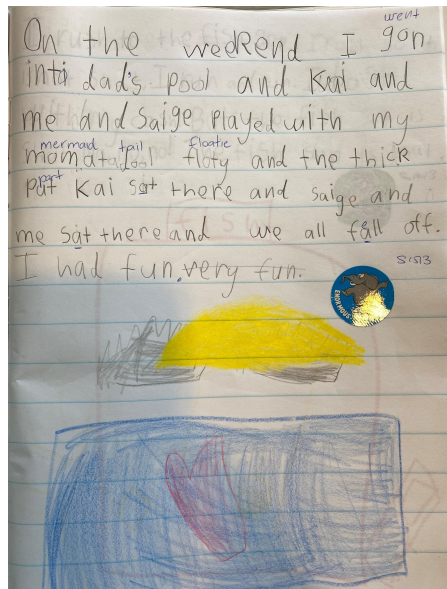 went
On the weekend I gon
into dad's pool and Kai and
me and Saige played with my
mermaid tail floatie
floty and the thick
part
put Kai sat there and saige and
me sat there and we all fell off.
I had fun, very fun.
ENORMOUS